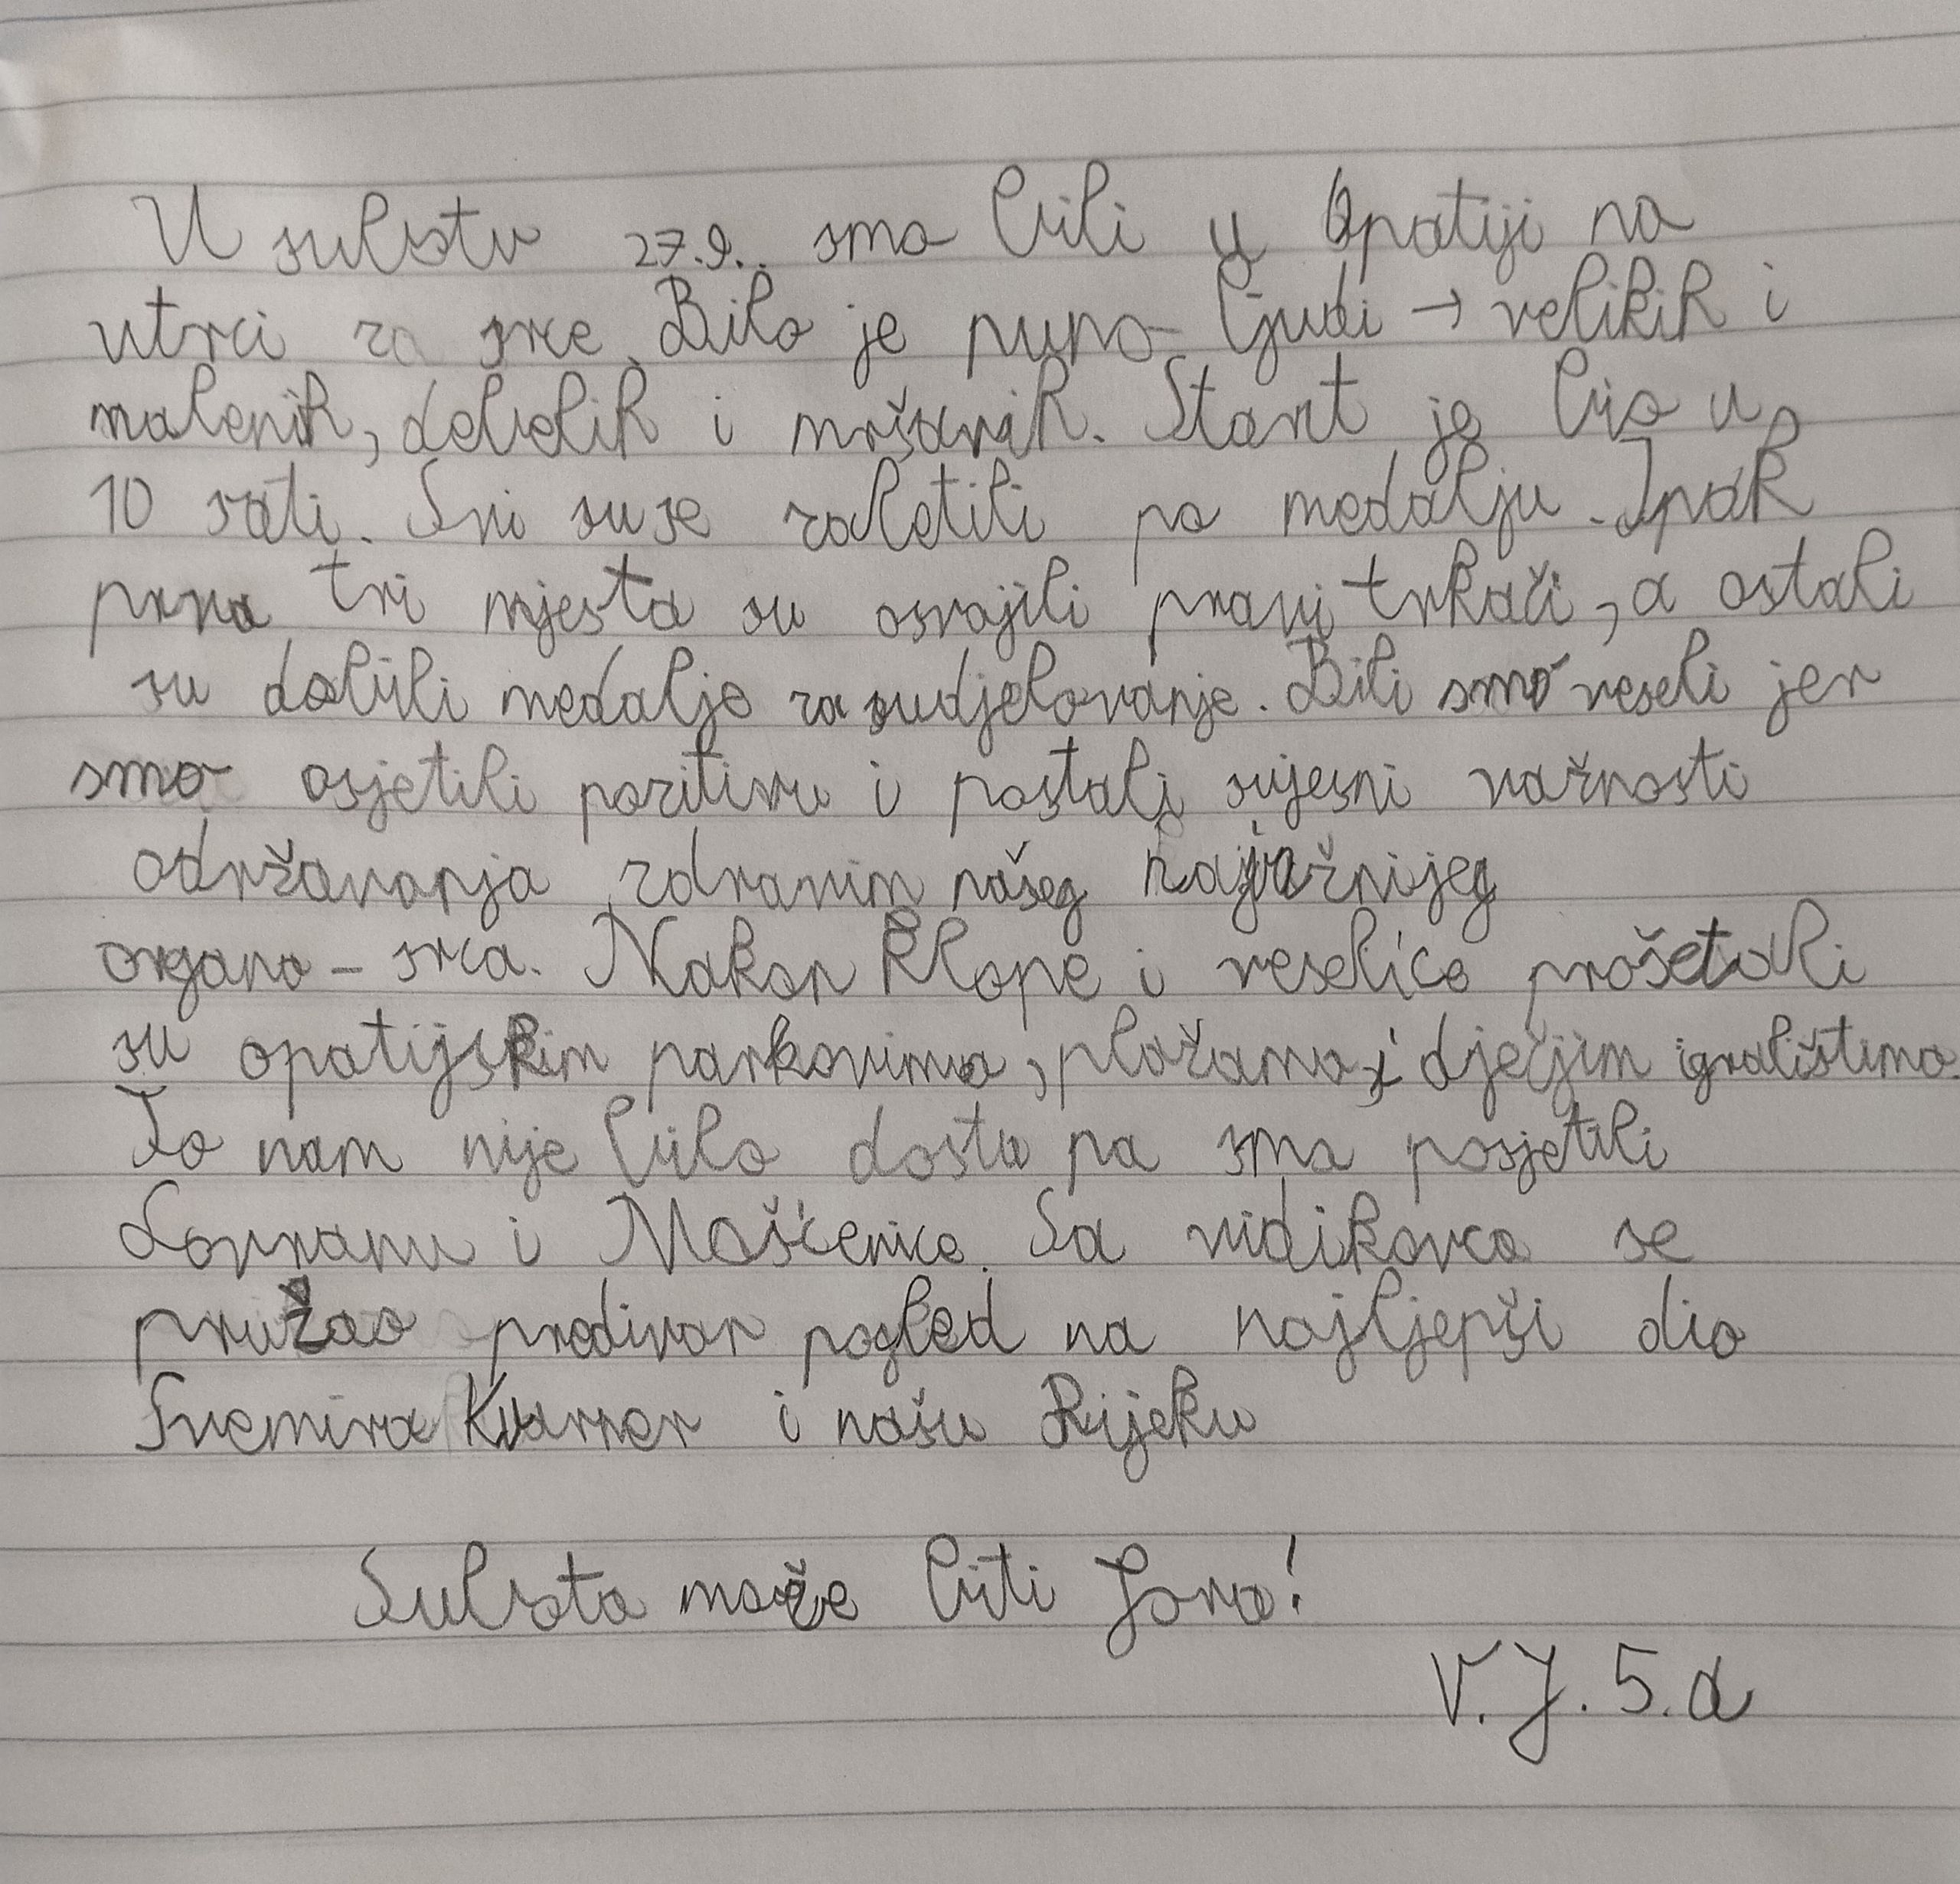 U subotu 27.9. smo bili u Opatiji na
utrci za srce. Bilo je puno ljudi → velikih i
malenih, debelih i mršavih. Start je bio u
10 sati. Svi su se zaletili po medalju. Ipak
prva tri mjesta su osvojili pravi trkači, a ostali
su dobili medalje za sudjelovanje. Bili smo veseli jer
smo osjetili pozitivu i postali svjesni važnosti
održavanja zdravim našeg najvažnijeg
organa - srca. Nakon klope i veselice prošetali
su opatijskim parkovima, plažama i dječjim igralištima.
To nam nije bilo dosta pa smo posjetili
Lovranu i Mošćenice. Sa vidikovca se
pružao predivan pogled na najljepši dio
Svemira Kvarner i našu Rijeku
Subota može biti fora!
V.J. 5.a